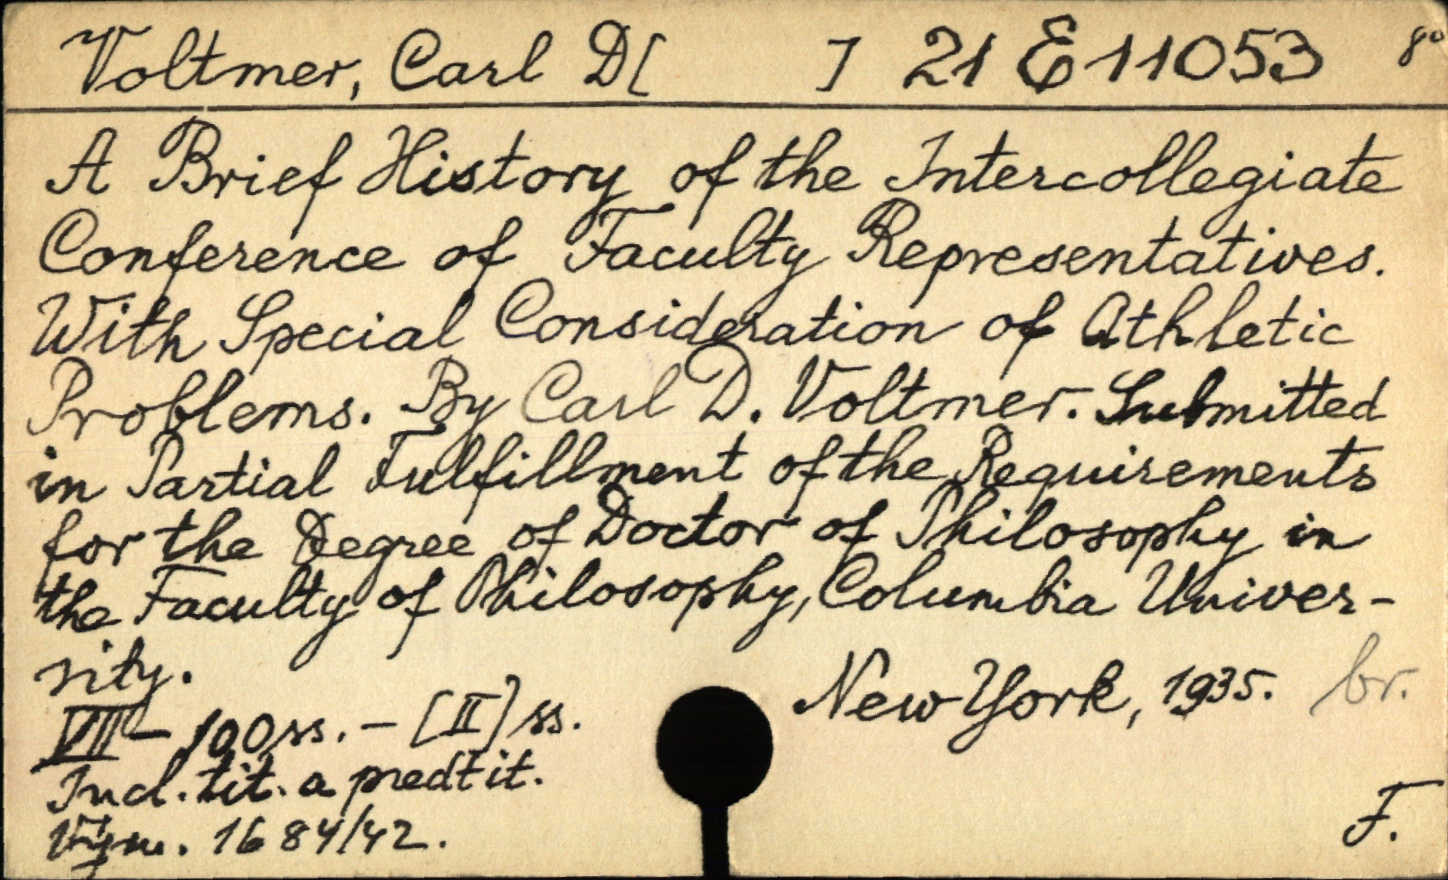 Voltmer, Carl D[ ] 21 E 11053 8°
A Brief History of the Intercollegiate
Conference of Faculty Representatives.
With Special Consideration of Athletic
Problems. By Carl D. Voltmer. Submitted
in Partial Fulfillment of the Requirements
for the Degree of Doctor of Philosophy in
the Faculty of Philosophy, Columbia Univer-
sity.
New York, 1935. br.
VII - 100 ss. - [II] ss.
Incl. tit. a predtit.
Vým. 1684/42.
F.